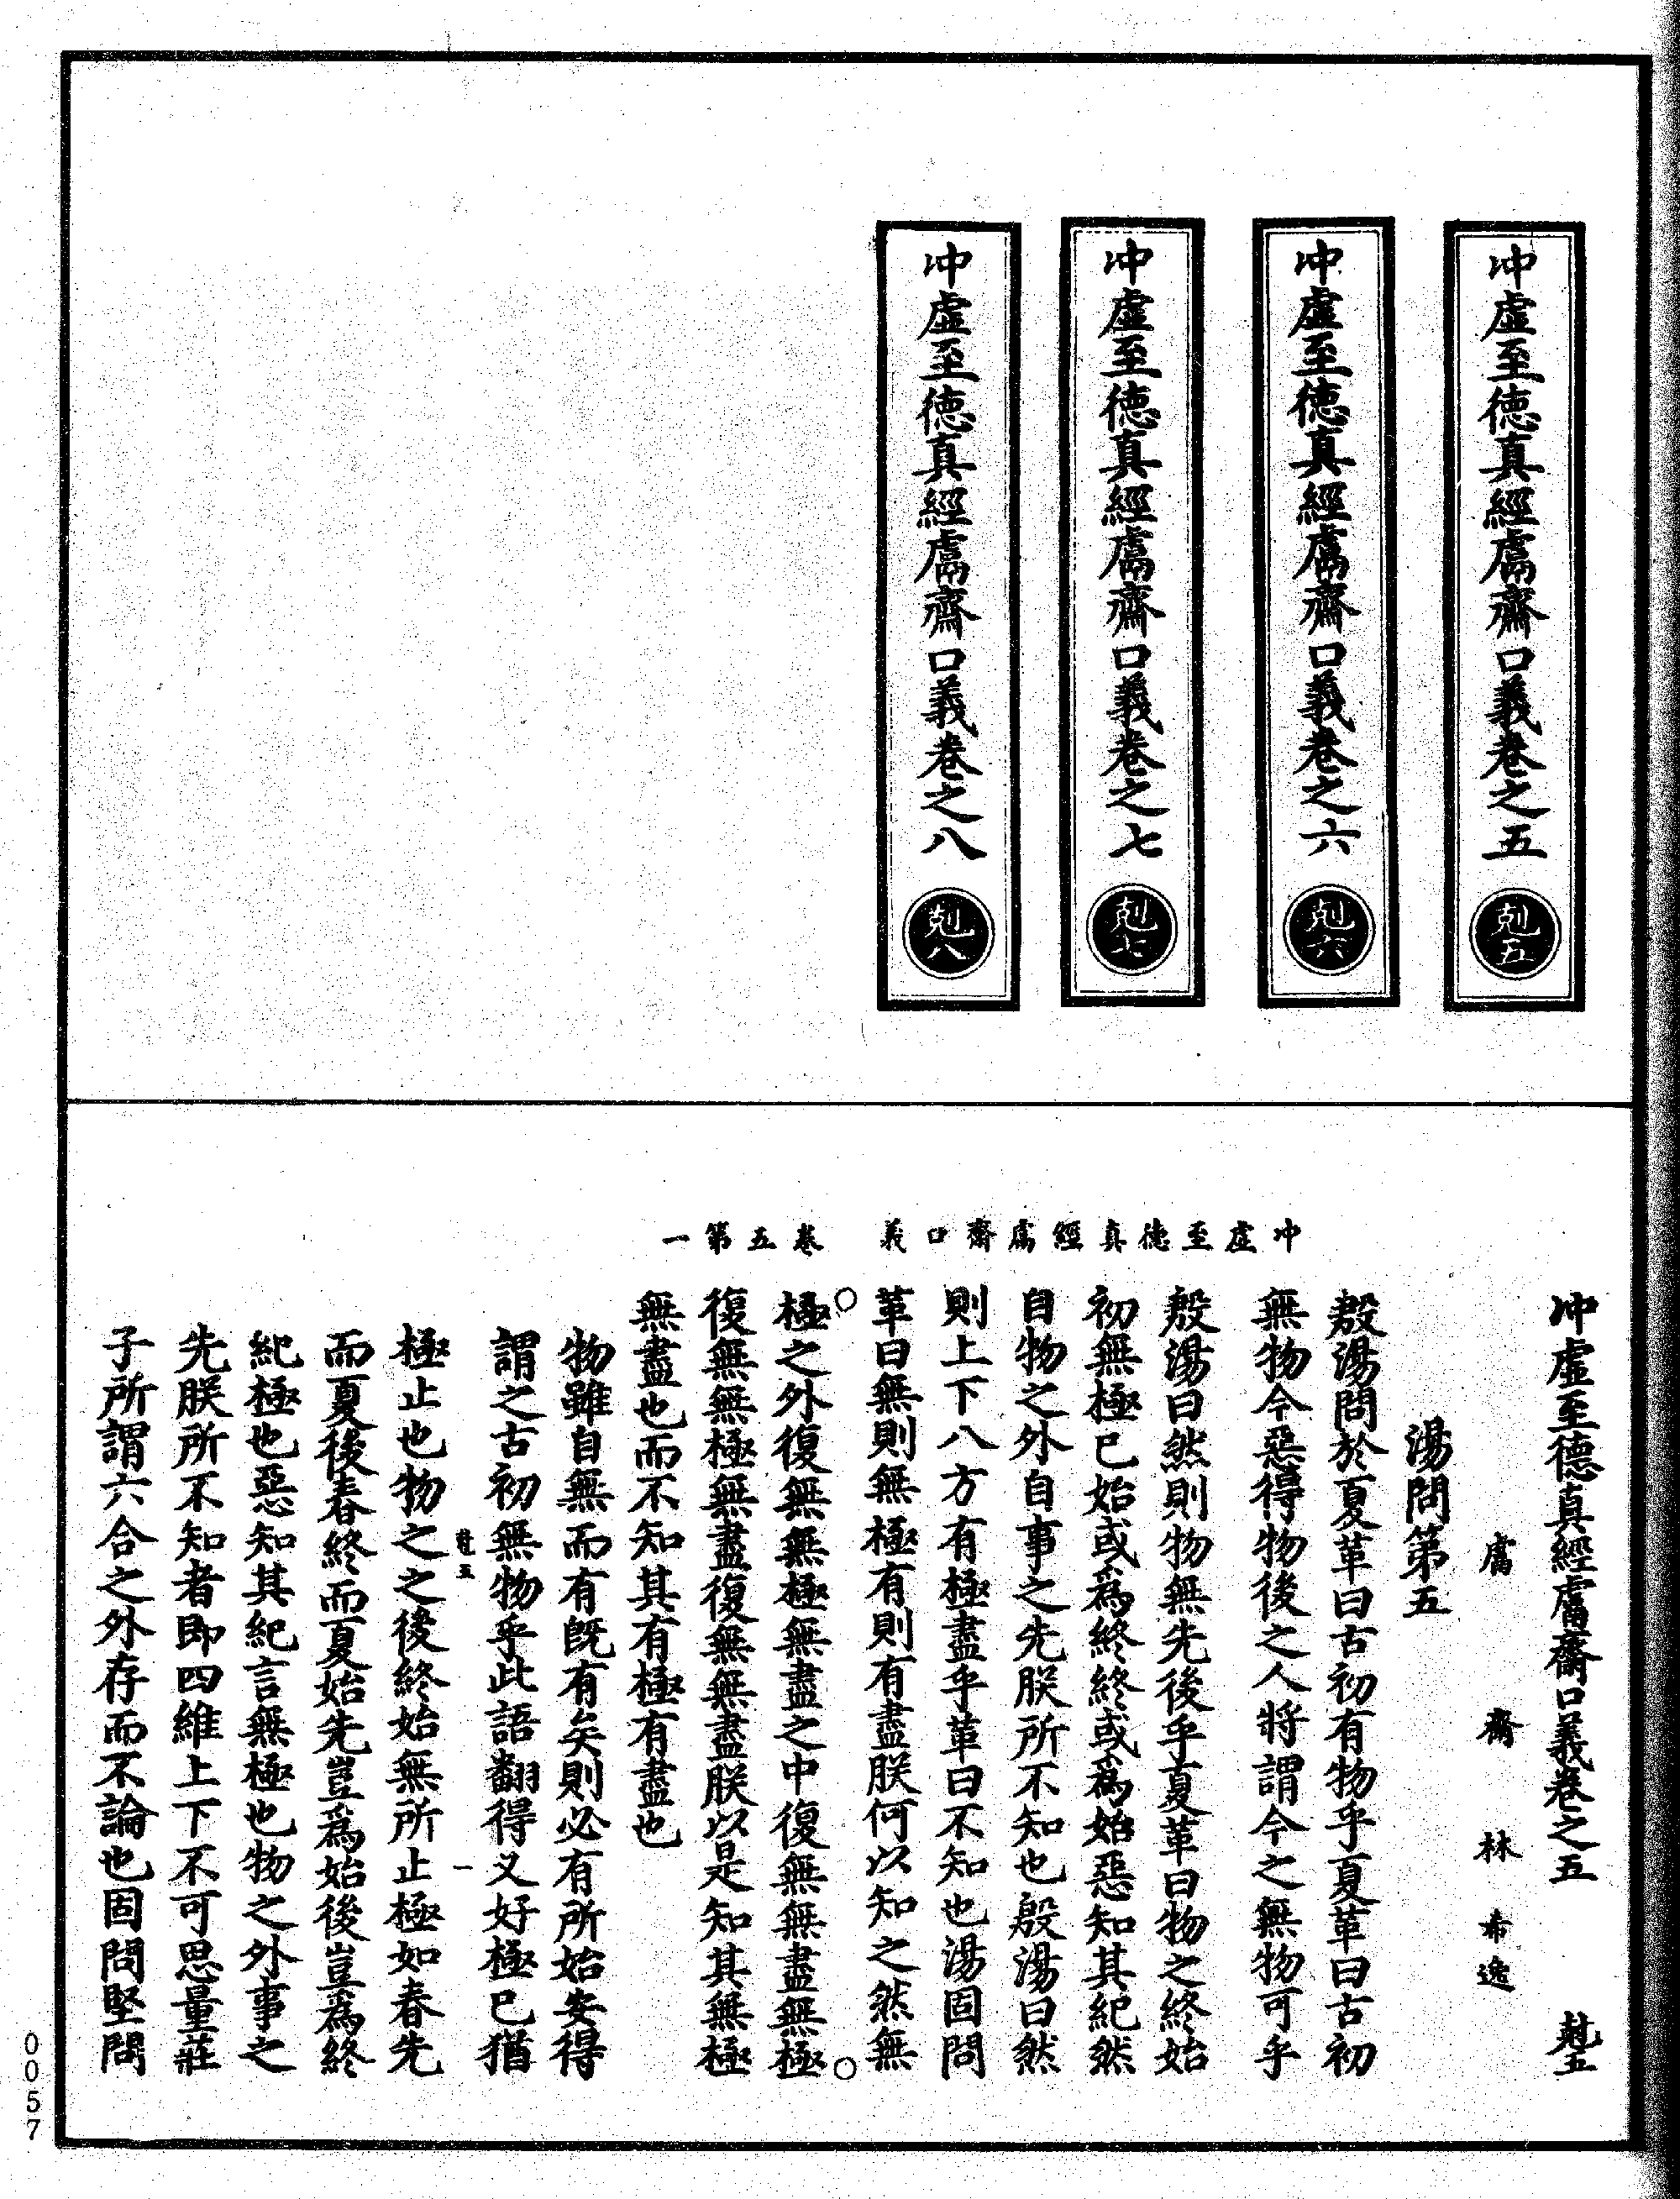 冲虛至德真經鬳齋口義卷之五
剋五
冲虛至德真經鬳齋口義卷之六
剋六
冲虛至德真經鬳齋口義卷之七
剋七
冲虛至德真經鬳齋口義卷之八
剋八
冲虛至德真經鬳齋口義 卷五第一
冲虛至德真經鬳齋口義卷之五 剋五
鬳齋林希逸
湯問第五
殷湯問於夏革曰古初有物乎夏革曰古初
無物今惡得物後之人將謂今之無物可乎
殷湯曰然則物無先後乎夏革曰物之終始
初無極已始或爲終終或爲始惡知其紀然
自物之外自事之先朕所不知也殷湯曰然
則上下八方有極盡乎革曰不知也湯固問
革曰無則無極有則有盡朕何以知之然無
極之外復無無極無盡之中復無無盡無極
復無無極無盡復無無盡朕以是知其無極
無盡也而不知其有極有盡也
物雖自無而有既有矣則必有所始安得
謂之古初無物乎此語翻得又好極已猶
剋五 一
極止也物之之後終始無所止極如春先
而夏後春終而夏始先豈爲始後豈爲終
紀極也惡知其紀言無極也物之外事之
先朕所不知者即四維上下不可思量莊
子所謂六合之外存而不論也固問堅問
0057